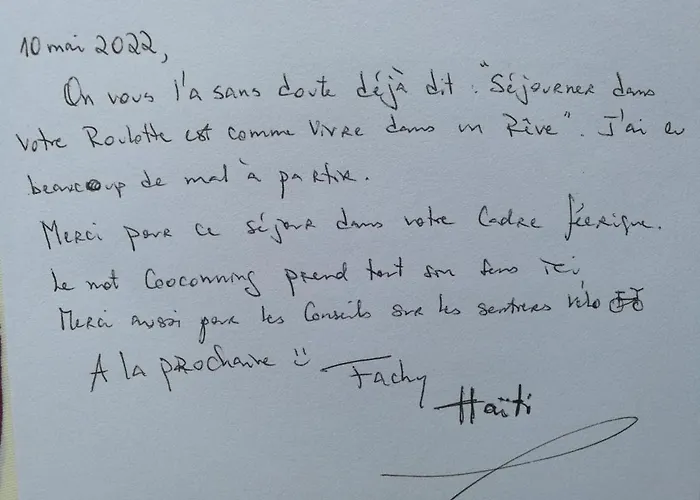 10 mai 2022,
On vous l'a sans doute déjà dit : "Séjourner dans
votre Roulotte est comme vivre dans un Rêve". J'ai eu
beaucoup de mal à partir.
Merci pour ce séjour dans votre Cadre féerique.
Le mot Coocouning prend tout son sens ici
Merci aussi pour les Conseils sur les sentiers vélo
A la prochaine
Fachy
Haïti